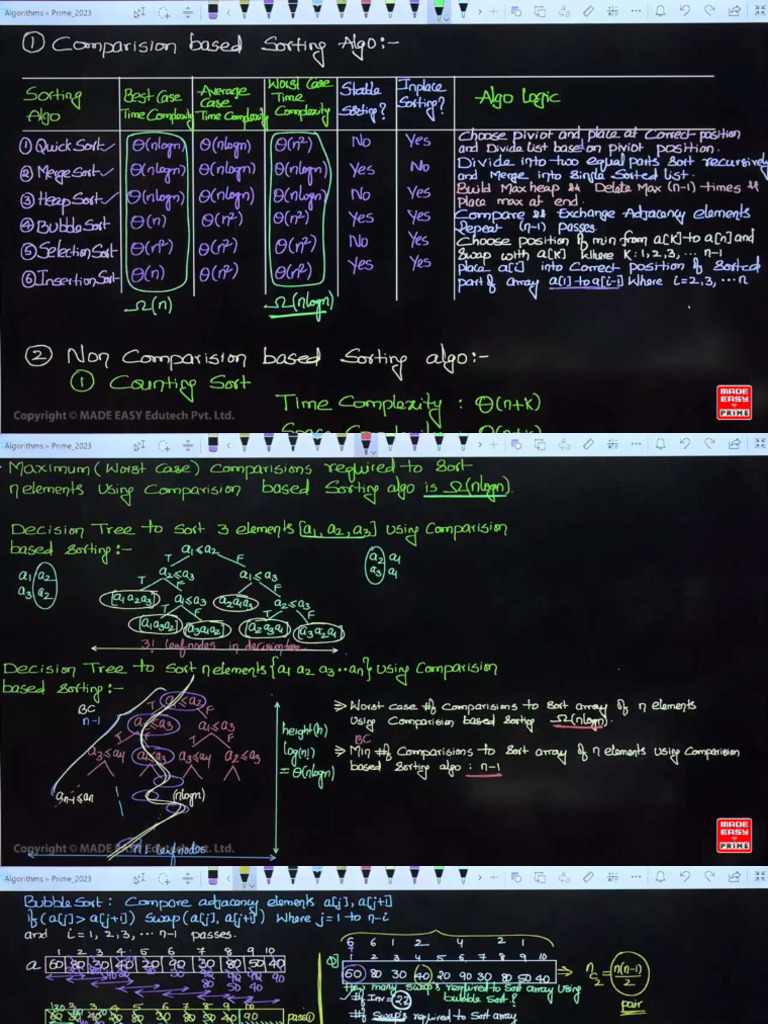 Algorithms » Prime_2023
① Comparision based Sorting Algo:-
Sorting Algo | Best Case Time Complexity | Average Case Time Complexity | Worst Case Time Complexity | Stable Sorting? | Inplace Sorting? | Algo Logic
① Quick Sort ✓ | Θ(nlogn) | Θ(nlogn) | Θ(n²) | No | Yes | Choose piviot and place at Correct position and Divide list based on piviot position.
② Merge Sort ✓ | Θ(nlogn) | Θ(nlogn) | Θ(nlogn) | Yes | No | Divide into two equal parts Sort recursively and Merge into Single Sorted list.
③ Heap Sort ✓ | Θ(nlogn) | Θ(nlogn) | Θ(nlogn) | No | Yes | Build Max heap && Delete Max (n-1) times && place max at end.
④ Bubble Sort | Θ(n) | Θ(n²) | Θ(n²) | Yes | Yes | Compare && Exchange Adjacency elements Repeat (n-1) passes.
⑤ Selection Sort | Θ(n²) | Θ(n²) | Θ(n²) | No | Yes | Choose position of min from a[K] to a[n] and Swap with a[K] where K:1,2,3,... n-1
⑥ Insertion Sort | Θ(n) | Θ(n²) | Θ(n²) | Yes | Yes | place a[i] into Correct position of Sorted part of array a[1] to a[i-1] where i=2,3,...n
Ω(n) Ω(nlogn)
② Non Comparision based Sorting algo:-
① Counting Sort
Time Complexity : Θ(n+k)
Copyright © MADE EASY Edutech Pvt. Ltd.
MADE EASY PRIME
Algorithms » Prime_2023
Maximum (Worst Case) Comparisions required to Sort
n elements Using Comparision based Sorting algo is Ω(nlogn).
Decision Tree to Sort 3 elements [a1, a2, a3] using Comparision
based Sorting:-
a1≤a2
T F
a2≤a3 a1≤a3
T F T F
[a1 a2 a3] a1≤a3 [a2 a1 a3] a2≤a3
T F T F
[a1 a3 a2] [a3 a1 a2] [a2 a3 a1] [a3 a2 a1]
a1 a2
a3 a2
a2 a1
a3 a1
3! leaf nodes in decision tree
Decision Tree to Sort n elements {a1 a2 a3 ..an} using Comparision
based Sorting:-
BC
n-1
a1≤a2
T F
a2≤a3 a1≤a3
a3≤a4 a1≤a3 a3≤a4 a2≤a3
an-1≤an
(nlogn)
n! leaf nodes
height(h)
log(n!)
= Θ(nlogn)
⇒ Worst case # Comparisions to Sort array of n elements
Using Comparision based Sorting Ω(nlogn).
BC
⇒ Min # Comparisions to Sort array of n elements Using Comparision
based Sorting algo : n-1
Copyright © MADE EASY Edutech Pvt. Ltd.
MADE EASY PRIME
Algorithms » Prime_2023
Bubble Sort : Compare adjacency elements a[j], a[j+1]
if (a[j] > a[j+1]) Swap(a[j], a[j+1]) Where j=1 to n-i
and i=1, 2, 3, ... n-1 passes.
1 2 3 4 5 6 7 8 9 10
a 60 80 30 40 20 90 30 80 50 40
pass①
6 6 1 2 4 2 1
1 2 3 4 5 6 7 8 9 10
60 80 30 40 20 90 30 80 50 40
⇒ nC2 = n(n-1)/2
pair
How many Swaps required to Sort array Using
bubble Sort?
# Inv = 22
# Swaps required to Sort array